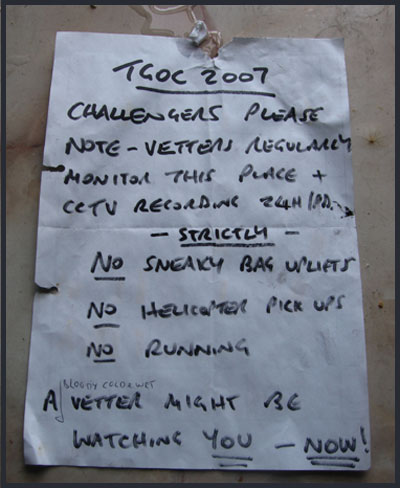 TGOC 2007
CHALLENGERS PLEASE
NOTE - VETTERS REGULARLY
MONITOR THIS PLACE +
CCTV RECORDING 24H/PD.
- STRICTLY -
NO SNEAKY BAG UPLIFTS
NO HELICOPTER PICK UPS
NO RUNNING
BLOODY COLD & WET
A VETTER MIGHT BE
WATCHING YOU - NOW!